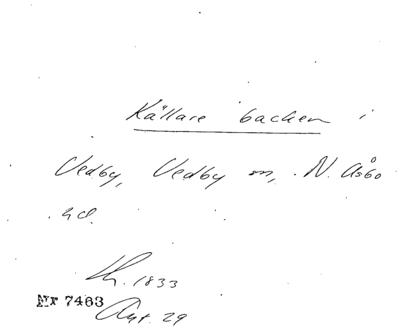 Källare backen i
Vedby, Vedby sn, N. Åsbo
hd.
Lh. 1833
Nr 7463
Akt. 29